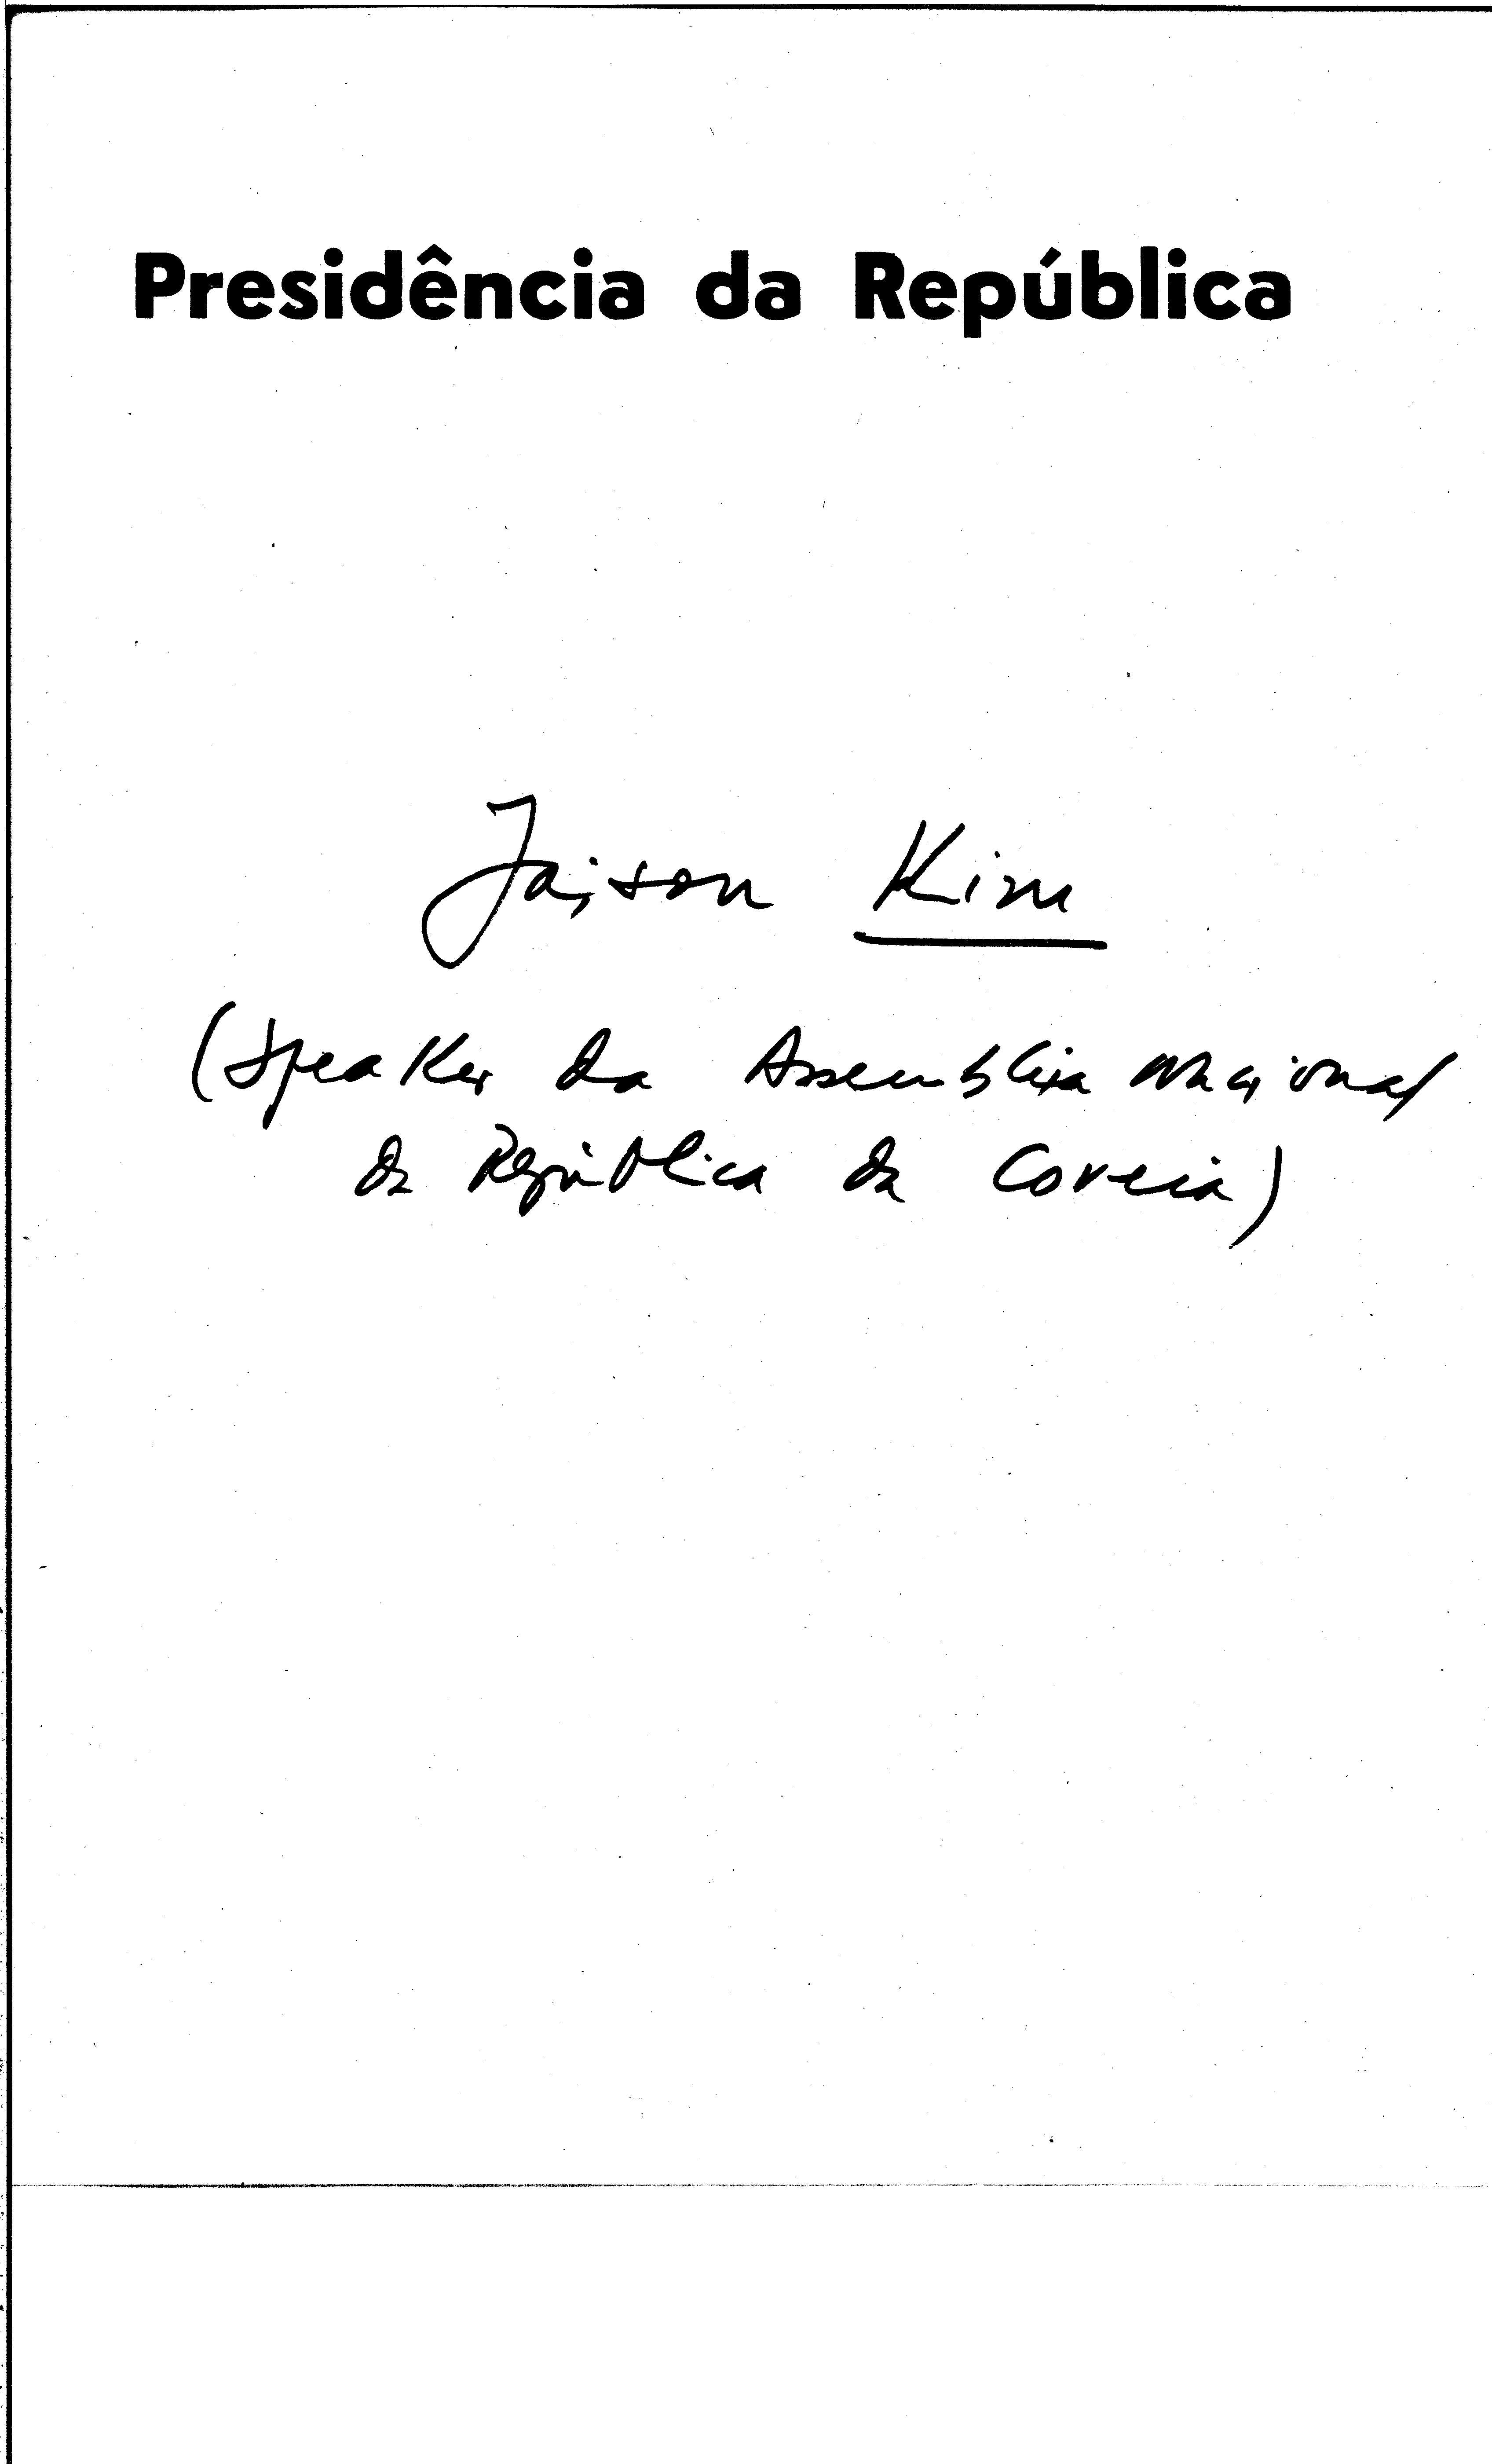 Presidência da República
Jaison Kim
(Speaker da Assembleia Nacional
da República da Coreia)